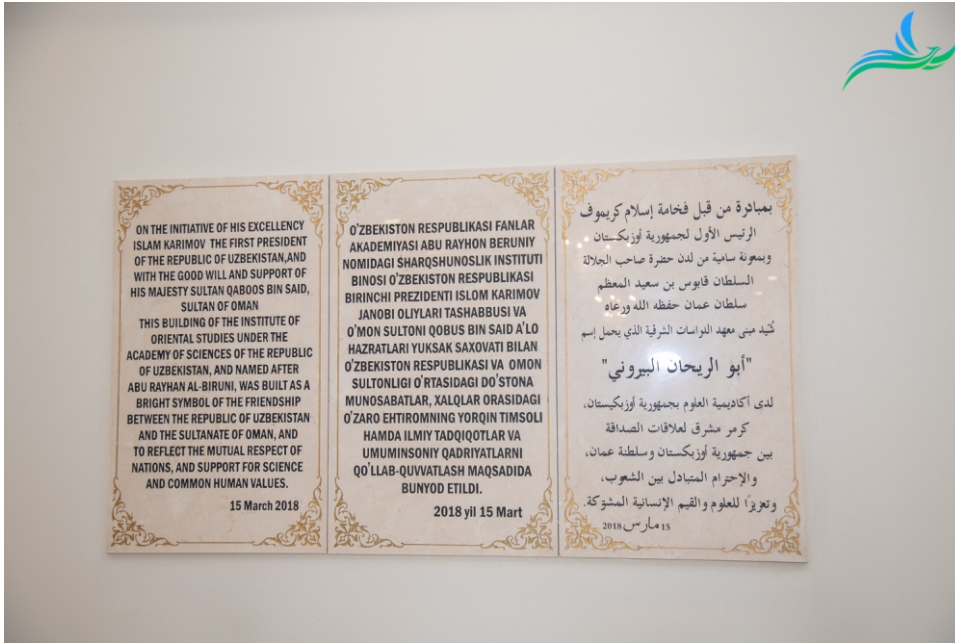 ON THE INITIATIVE OF HIS EXCELLENCY
ISLAM KARIMOV THE FIRST PRESIDENT
OF THE REPUBLIC OF UZBEKISTAN,AND
WITH THE GOOD WILL AND SUPPORT OF
HIS MAJESTY SULTAN QABOOS BIN SAID,
SULTAN OF OMAN
THIS BUILDING OF THE INSTITUTE OF
ORIENTAL STUDIES UNDER THE
ACADEMY OF SCIENCES OF THE REPUBLIC
OF UZBEKISTAN, AND NAMED AFTER
ABU RAYHAN AL-BIRUNI, WAS BUILT AS A
BRIGHT SYMBOL OF THE FRIENDSHIP
BETWEEN THE REPUBLIC OF UZBEKISTAN
AND THE SULTANATE OF OMAN, AND
TO REFLECT THE MUTUAL RESPECT OF
NATIONS, AND SUPPORT FOR SCIENCE
AND COMMON HUMAN VALUES.
15 March 2018
O'ZBEKISTON RESPUBLIKASI FANLAR
AKADEMIYASI ABU RAYHON BERUNIY
NOMIDAGI SHARQSHUNOSLIK INSTITUTI
BINOSI O'ZBEKISTON RESPUBLIKASI
BIRINCHI PREZIDENTI ISLOM KARIMOV
JANOBI OLIYLARI TASHABBUSI VA
O'MON SULTONI QOBUS BIN SAID A'LO
HAZRATLARI YUKSAK SAXOVATI BILAN
O'ZBEKISTON RESPUBLIKASI VA OMON
SULTONLIGI O'RTASIDAGI DO'STONA
MUNOSABATLAR, XALQLAR ORASIDAGI
O'ZARO EHTIROMNING YORQIN TIMSOLI
HAMDA ILMIY TADQIQOTLAR VA
UMUMINSONIY QADRIYATLARNI
QO'LLAB-QUVVATLASH MAQSADIDA
BUNYOD ETILDI.
2018 yil 15 Mart
بمبادرة من قبل فخامة إسلام كريموف
الرئيس الأول لجمهورية أوزبكستان
وبمعونة سامية من لدن حضرة صاحب الجلالة
السلطان قابوس بن سعيد المعظم
سلطان عمان حفظه الله ورعاه
شُيد مبنى معهد الدراسات الشرقية الذي يحمل إسم
"أبو الريحان البيروني"
لدى أكاديمية العلوم بجمهورية أوزبكيستان،
كرمز مشرق لعلاقات الصداقة
بين جمهورية أوزبكستان وسلطنة عمان،
والإحترام المتبادل بين الشعوب،
وتعزيزًا للعلوم والقيم الإنسانية المشتركة.
15 مارس 2018